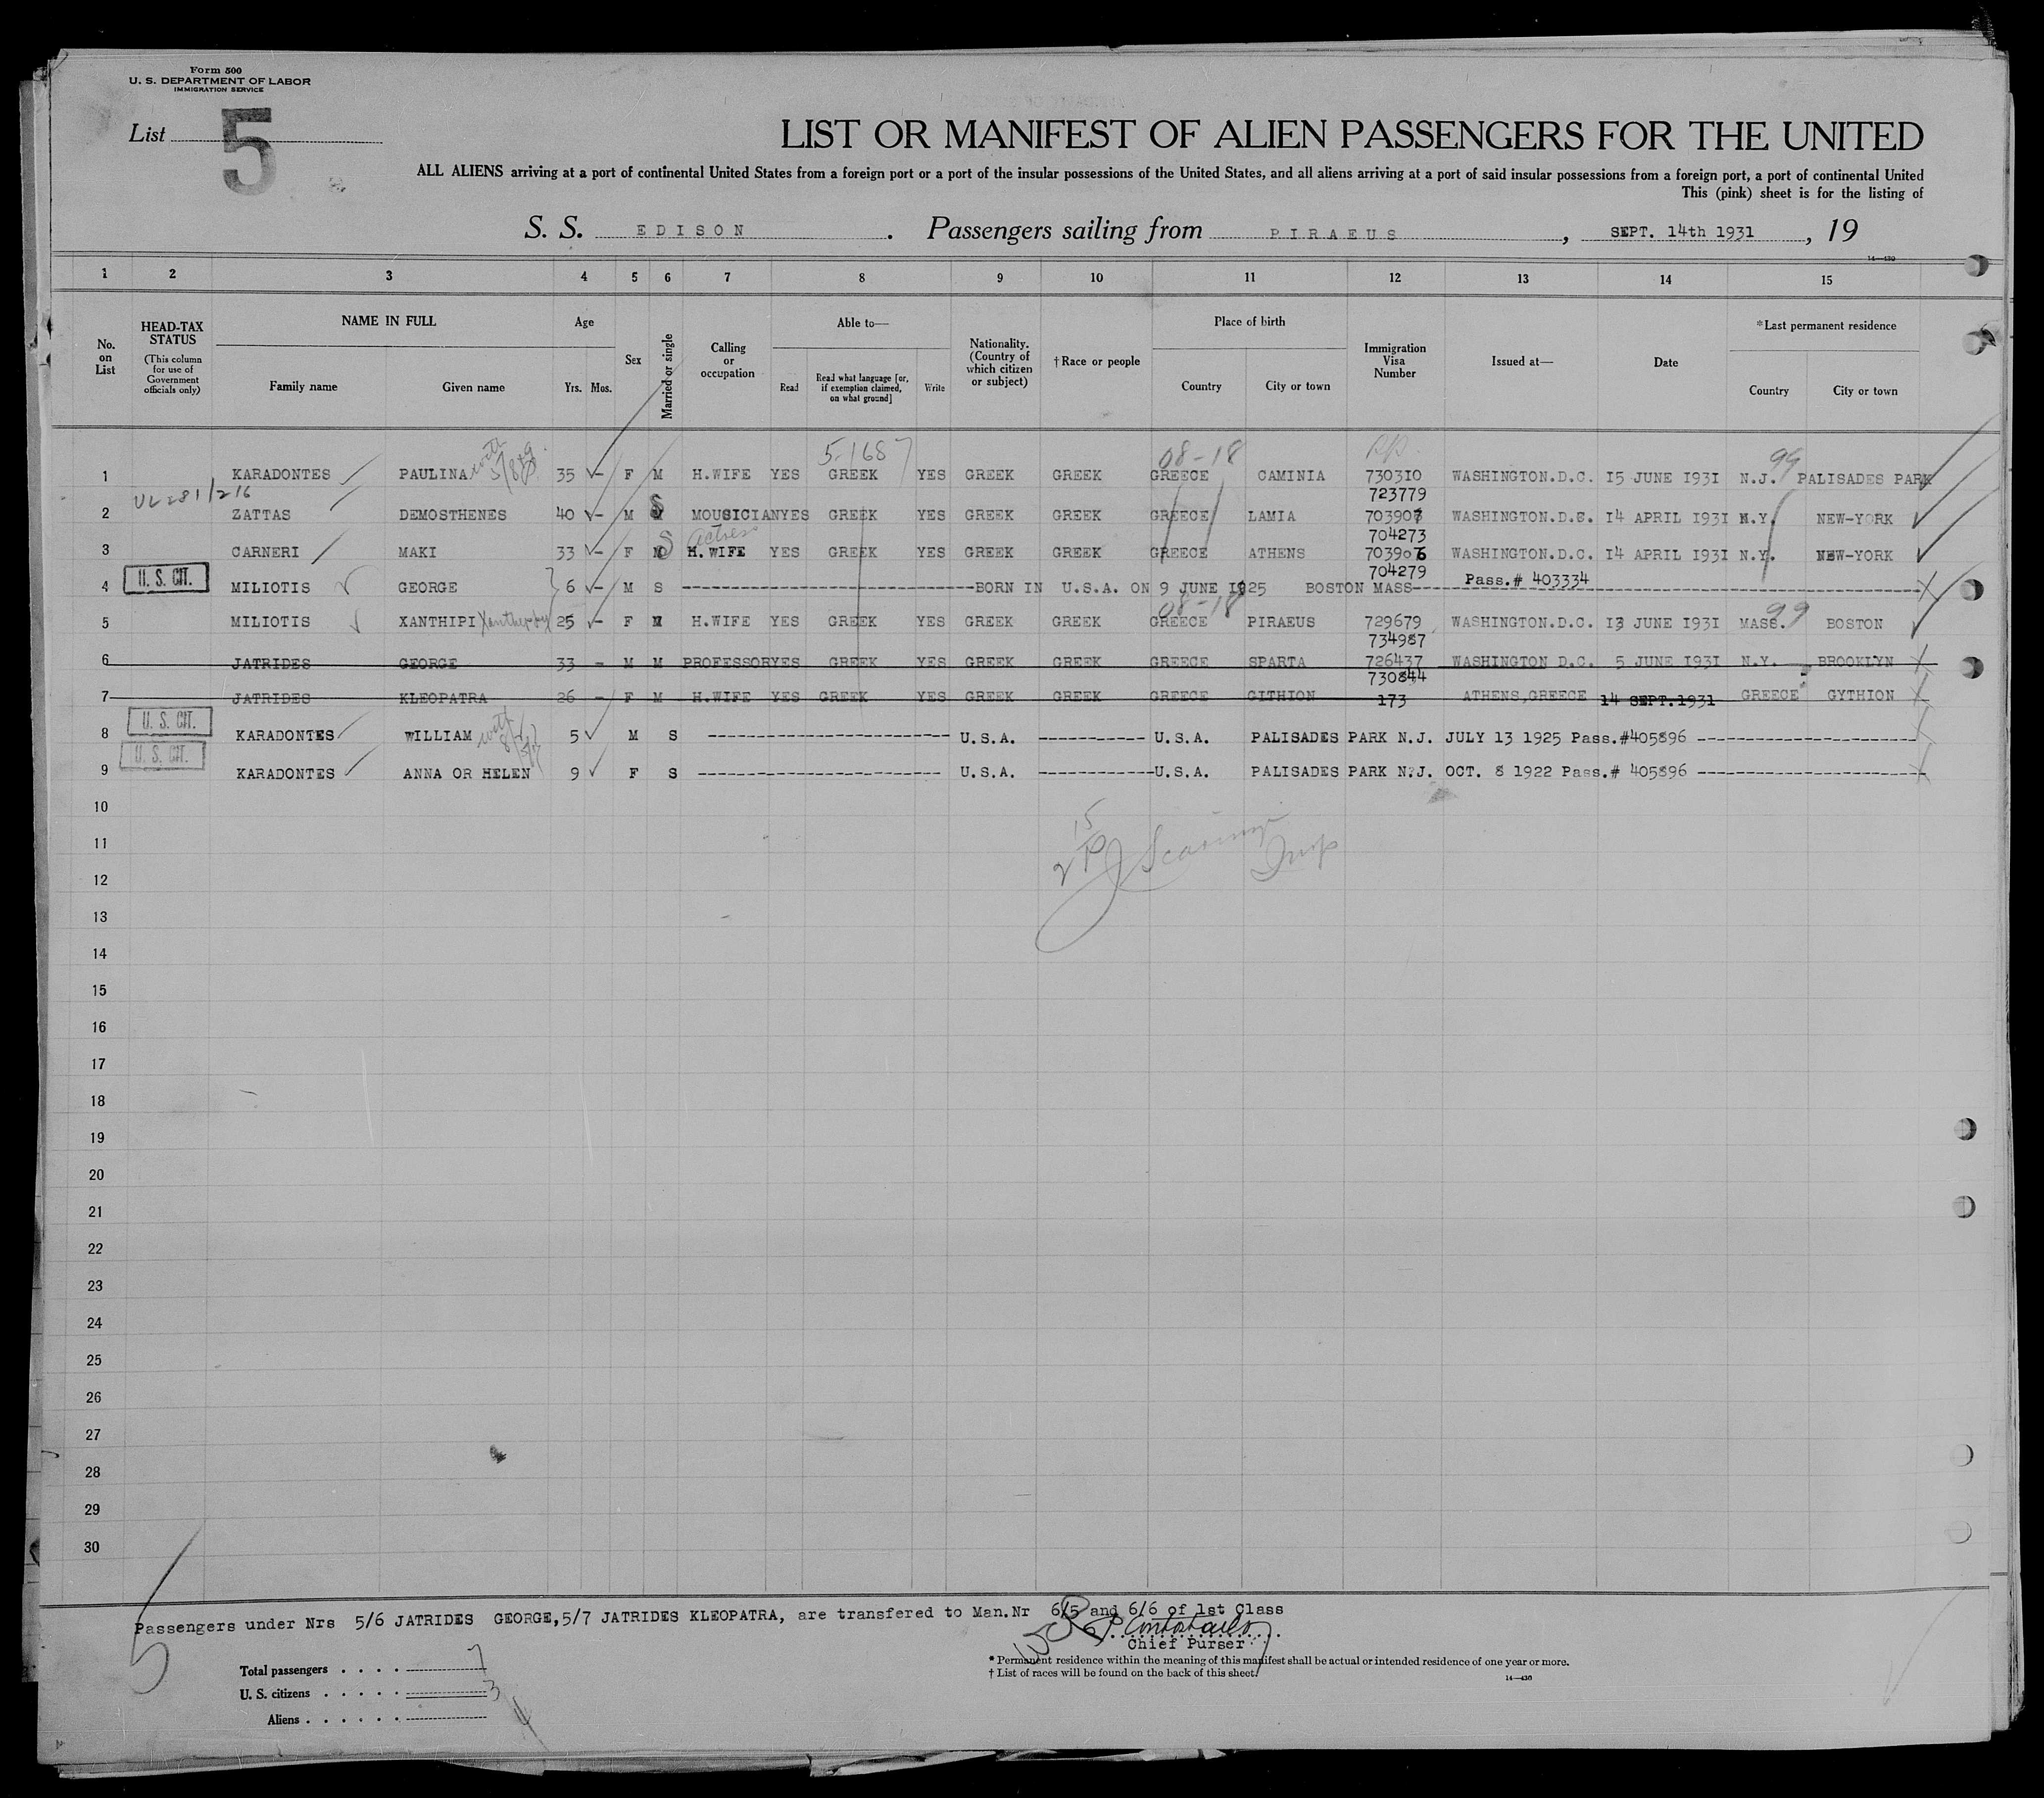 Form 500
U. S. DEPARTMENT OF LABOR
IMMIGRATION SERVICE
List 5
LIST OR MANIFEST OF ALIEN PASSENGERS FOR THE UNITED
ALL ALIENS arriving at a port of continental United States from a foreign port or a port of the insular possessions of the United States, and all aliens arriving at a port of said insular possessions from a foreign port, a port of continental United
This (pink) sheet is for the listing of
S. S. EDISON. Passengers sailing from PIRAEUS, SEPT. 14th 1931, 19
14—430
1 2 3 4 5 6 7 8 9 10 11 12 13 14 15
No. on List
HEAD-TAX STATUS
(This column for use of Government officials only)
NAME IN FULL
Family name Given name
Age
Yrs. Mos.
Sex
Married or single
Calling or occupation
Able to—
Read Read what language [or, if exemption claimed, on what ground] Write
Nationality. (Country of which citizen or subject)
†Race or people
Place of birth
Country City or town
Immigration Visa Number
Issued at—
Date
*Last permanent residence
Country City or town
with 5/8+9 5-1687 08-18 99
1 KARADONTES PAULINA 35 - F M H.WIFE YES GREEK YES GREEK GREEK GREECE CAMINIA 730310 WASHINGTON.D.C. 15 JUNE 1931 N.J. PALISADES PARK
723779
2 ZATTAS DEMOSTHENES 40 - M S MOUSICIAN YES GREEK YES GREEK GREEK GREECE LAMIA 703907 WASHINGTON.D.C. 14 APRIL 1931 N.Y. NEW-YORK
actress 704273
3 CARNERI MAKI 33 - F S H.WIFE YES GREEK YES GREEK GREEK GREECE ATHENS 703906 WASHINGTON.D.C. 14 APRIL 1931 N.Y. NEW-YORK
704279
U. S. CIT.
4 MILIOTIS GEORGE 6 - M S BORN IN U.S.A. ON 9 JUNE 1925 BOSTON MASS Pass.# 403334
08-18 99
5 MILIOTIS XANTHIPI 25 - F M H.WIFE YES GREEK YES GREEK GREEK GREECE PIRAEUS 729679 WASHINGTON.D.C. 13 JUNE 1931 MASS. BOSTON
734987
6 JATRIDES GEORGE 33 - M M PROFESSOR YES GREEK YES GREEK GREEK GREECE SPARTA 726437 WASHINGTON D.C. 5 JUNE 1931 N.Y. BROOKLYN
730844
7 JATRIDES KLEOPATRA 26 - F M H.WIFE YES GREEK YES GREEK GREEK GREECE GITHION 173 ATHENS,GREECE 14 SEPT.1931 GREECE GYTHION
U. S. CIT.
8 KARADONTES WILLIAM with 5 M S U.S.A. U.S.A. PALISADES PARK N.J. JULY 13 1925 Pass.#405896
U. S. CIT.
9 KARADONTES ANNA OR HELEN 9 F S U.S.A. U.S.A. PALISADES PARK N.J. OCT. 8 1922 Pass.# 405896
10
11
12
13
14
15
16
17
18
19
20
21
22
23
24
25
26
27
28
29
30
Passengers under Nrs 5/6 JATRIDES GEORGE,5/7 JATRIDES KLEOPATRA, are transfered to Man.Nr 6/5 and 6/6 of 1st Class
Chief Purser
5
Total passengers 7
U. S. citizens 3
Aliens 4
* Permanent residence within the meaning of this manifest shall be actual or intended residence of one year or more.
† List of races will be found on the back of this sheet.
14—430